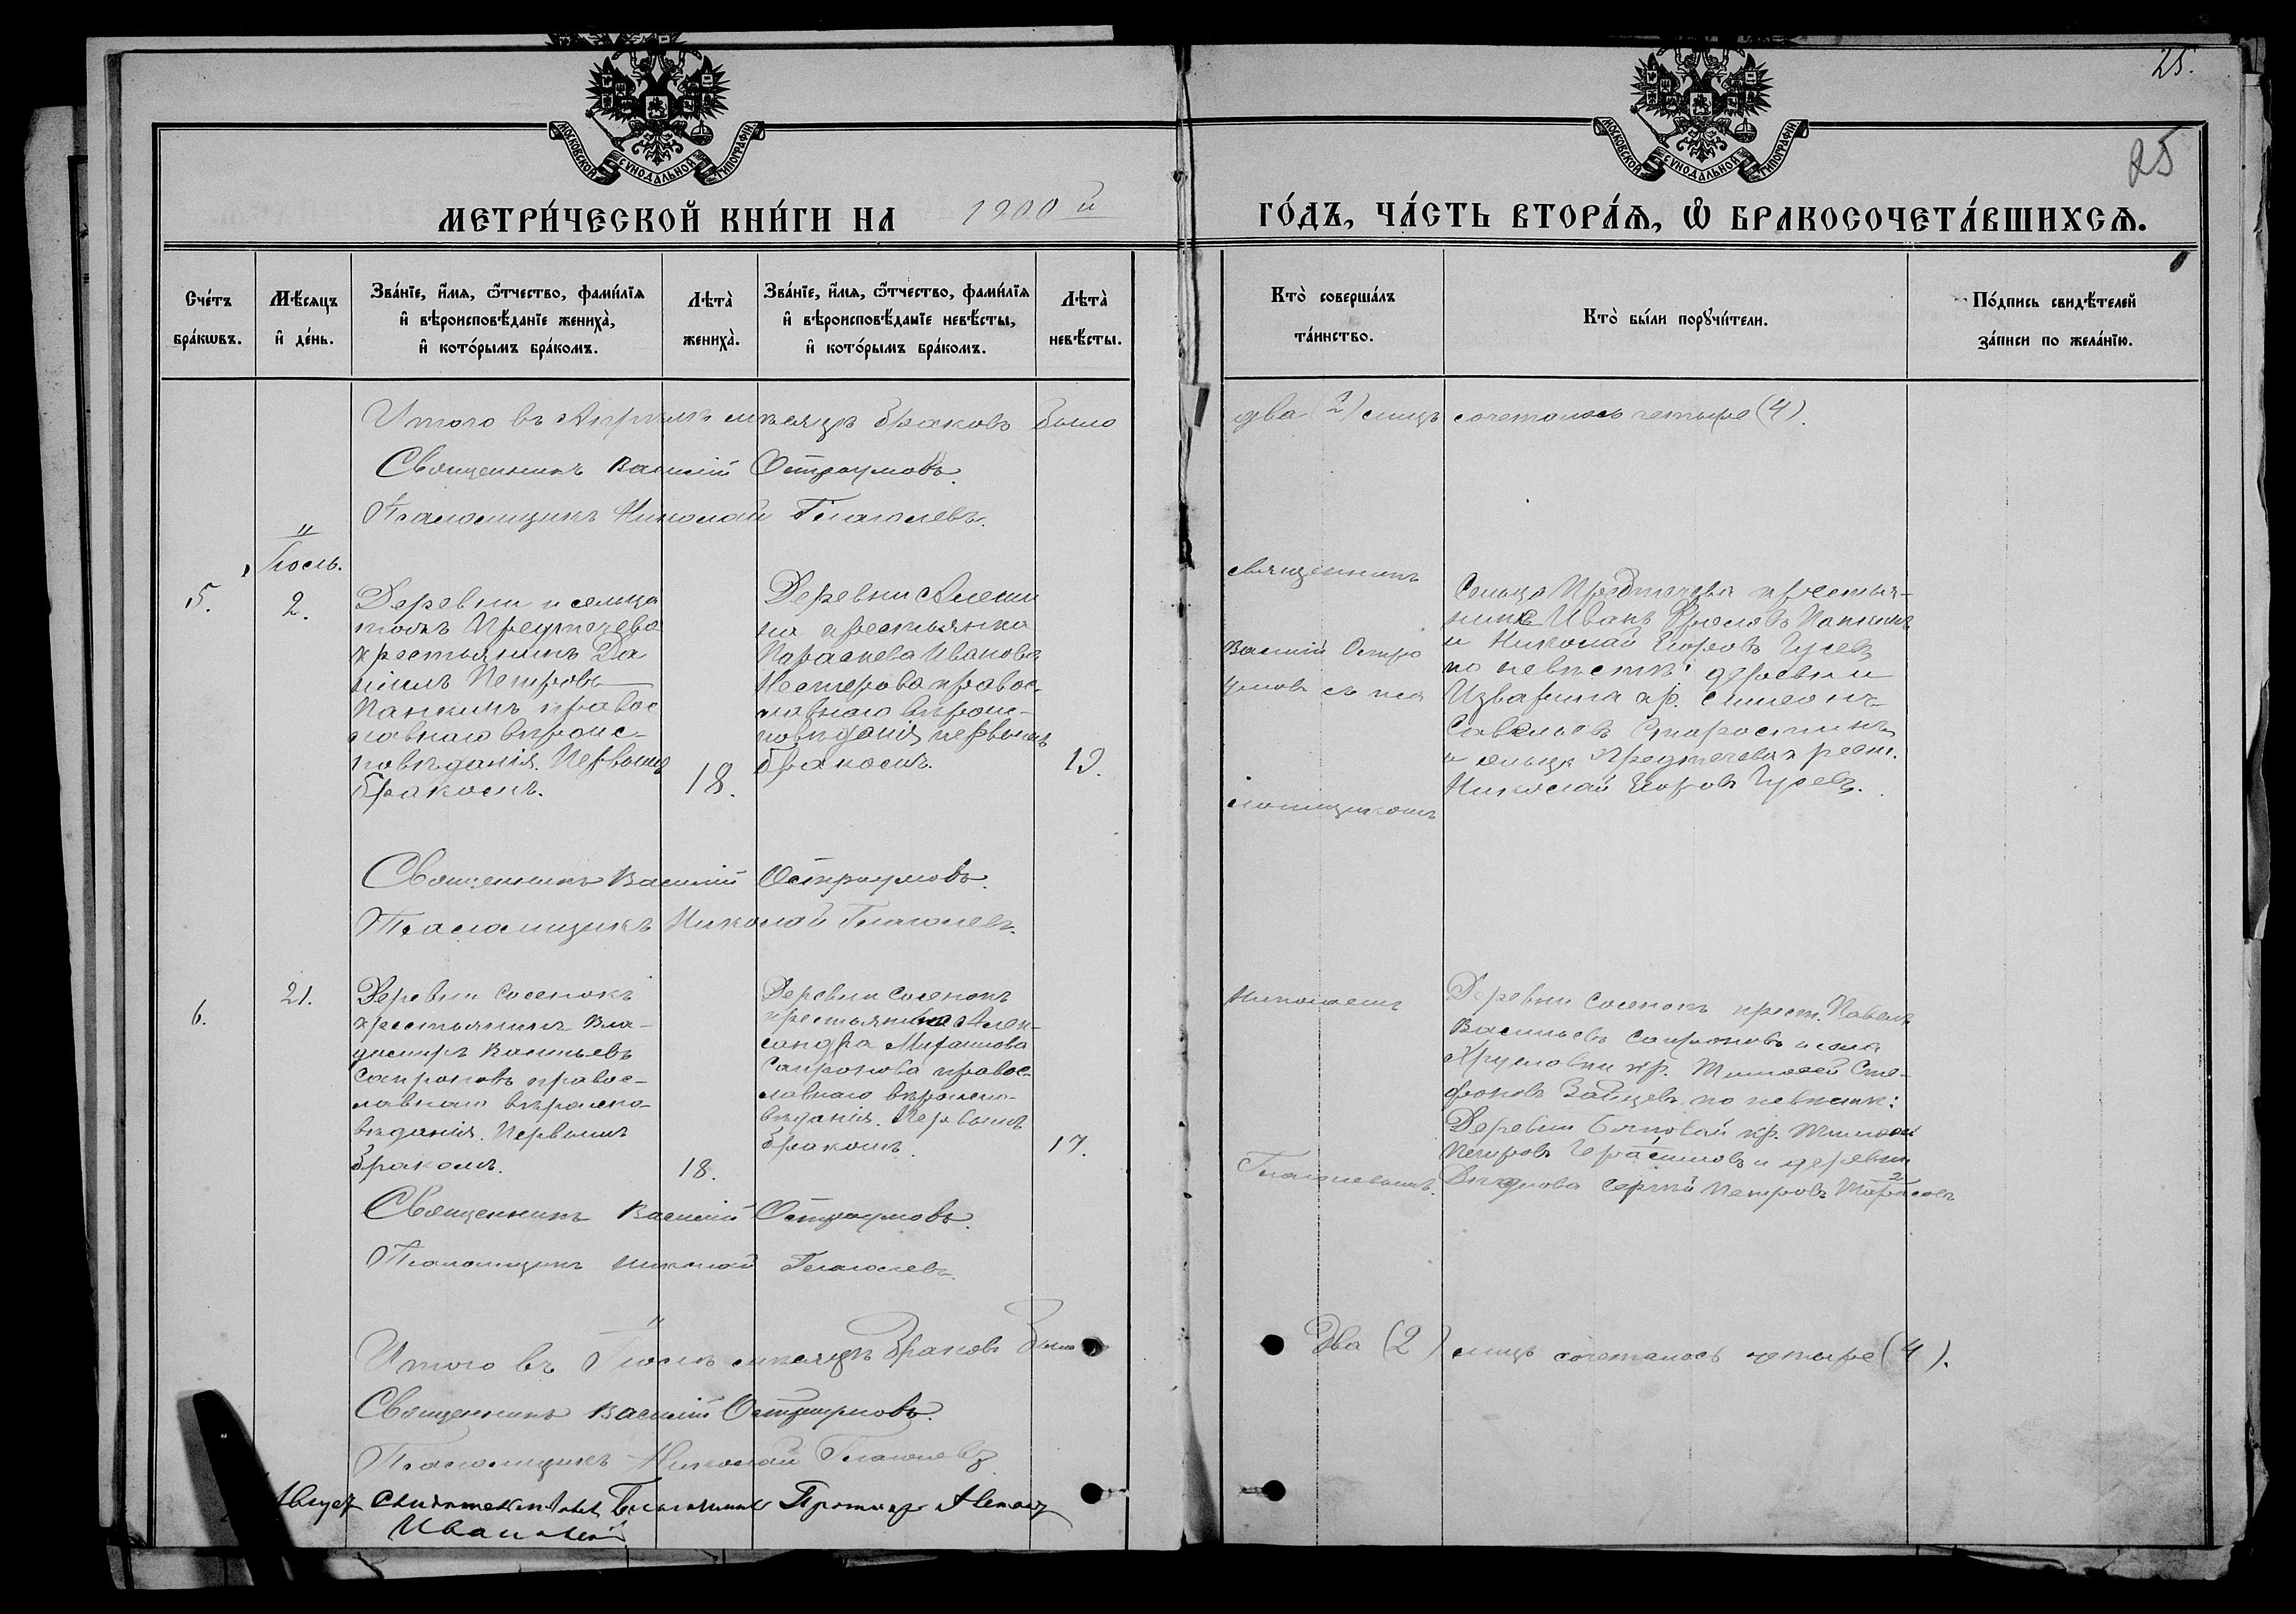 25.
25
МОСКОВСКОЙ СУНОДАЛЬНОЙ ТИПОГРАФІИ
МОСКОВСКОЙ СУНОДАЛЬНОЙ ТИПОГРАФІИ
МЕТРИ́ЧЕСКОЙ КНИ́ГИ НА 1900 й
ГО́ДЪ, ЧА́СТЬ ВТОРА́Я, Ѡ БРАКОСОЧЕТА́ВШИХСЯ.
Сче́тъ
бра́кѡвъ.
Мѣ́сяцъ
и҆ де́нь.
Зва́нїе, и҆́мя, ѻ҆́тчество, фами́лїя
и҆ вѣроисповѣ́данїе жениха̀,
и҆ кото́рымъ бра́комъ.
Лѣта̀
жениха̀.
Зва́нїе, и҆́мя, ѻ҆́тчество, фами́лїя
и҆ вѣроисповѣ́данїе невѣ́сты,
и҆ кото́рымъ бра́комъ.
Лѣта̀
невѣ́сты.
Кто̀ соверша́лъ
та́инство.
Кто̀ бы́ли порꙋчи́тели.
По́дпись свидѣ́телей
за́писи по жела́нїю.
Итого въ Апрѣлѣ мѣсяцѣ браковъ было
два (2) лицъ сочеталось четыре (4).
Священникъ Василій Остроумовъ.
Псаломщикъ Николай Глаголевъ.
Іюль.
5.
2.
Деревни и сельца
тожъ Предтечева
крестьянинъ Да
ніилъ Петровъ
Панкинъ правос
лавнаго вѣроис-
повѣданія. Первымъ
бракомъ.
18.
Деревни Алеши
на крестьянка
Параскева Иванова
Нестерова правос-
лавнаго вѣроис-
повѣданія первымъ
бракомъ.
19.
священникъ
Василій Остро
умовъ съ пса
ломщикомъ
Сельца Предтечева крестья-
нинъ Иванъ Фроловъ Панкинъ
и Николай Егоровъ Гусевъ
по невѣстѣ: деревни
Изварина кр. Симеонъ
Савельевъ Старостинъ
и сельца Предтечева крест.
Николай Егоровъ Гусевъ.
Священникъ Василій Остроумовъ.
Псаломщикъ Николай Глаголевъ.
6.
21.
Деревни Сосенокъ
крестьянинъ Вла-
димиръ Васильевъ
Сапроновъ правос-
лавнаго вѣроиспо-
вѣданія. Первымъ
бракомъ.
18.
Деревни Сосенокъ
крестьянка Алек-
сандра Михаилова
Сапронова правос-
лавнаго вѣроиспо-
вѣданія. Первымъ
бракомъ.
17.
Николаемъ
Глаголевымъ.
Деревни Сосенокъ крест. Павелъ
Васильевъ Сапроновъ и села
кр. Тимофей Сте-
фановъ Зайцевъ по невѣстѣ:
Деревни кр.
Петровъ Герасимовъ и деревни
Сергѣй Петровъ Тарасовъ
Священникъ Василій Остроумовъ.
Псаломщикъ Николай Глаголевъ.
Итого въ Іюлѣ мѣсяцѣ браковъ было
Два (2) лицъ сочеталось четыре (4).
Священникъ Василій Остроумовъ.
Псаломщикъ Николай Глаголевъ
Благочинный